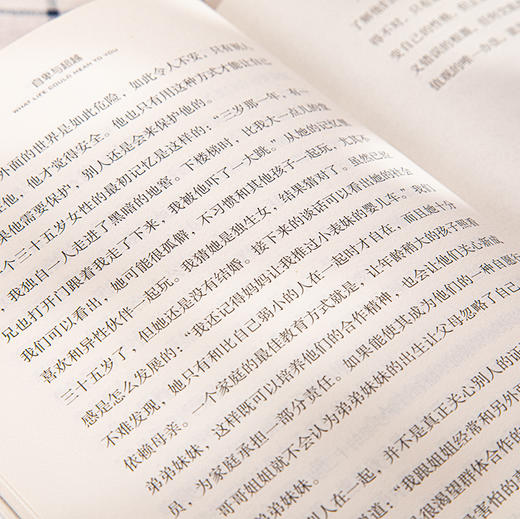 自卑与超越
WHAT LIFE COULD MEAN TO YOU
外面的世界是如此危险，如此令人不安，只有别人
他，他才觉得安全。他也只有用这种方式才能让自己
果他需要保护，别人还是会来保护他的。
个三十五岁女性的最初记忆是这样的：“三岁那一年，有一
，我独自一人走进了黑暗的地窖。下楼梯时，比我大一点儿的堂
兄也打开门跟着我走了下来，我被他吓了一大跳。”从她的记忆里
我们可以看出，她可能很孤僻，不习惯和其他孩子一起玩，尤其不
喜欢和异性伙伴一起玩。我猜他是独生女，结果猜对了。虽然已经
三十五岁了，但她还是没有结婚。接下来的谈话可以看出她的社会
感是怎么发展的：“我还记得妈妈让我推过小表妹的婴儿车。”我们
不难发现，她只有和比自己弱小的人在一起时才自在，而且她十分
依赖母亲。一个家庭的最佳教育方式就是，让年龄稍大的孩子照看
弟弟妹妹，这样既可以培养他们的合作精神，也会让他们关心新成
员，为家庭承担一部分责任。如果能使其成为他们的一种自愿行
哥哥姐姐就不会认为弟弟妹妹的出生让父母忽略了自己
弟弟妹妹。
别人在一起，并不是真正关心别人的证
道：“我跟姐姐经常和另外两
很渴望群体合作的
害怕的
了解他们
得不对，只有
变自己的性格。
又错误的根源，
值观的唯一办法。